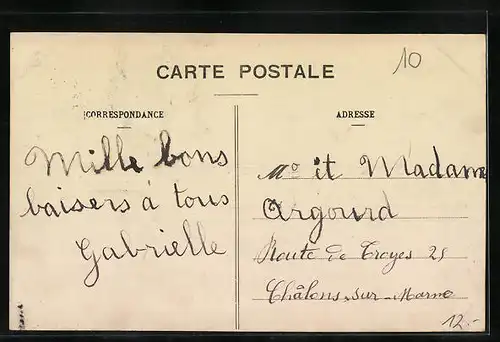 10
CARTE POSTALE
CORRESPONDANCE
Mille bons
baisers à tous
Gabrielle
ADRESSE
Mo et Madame
Argourd
Route de Troyes 25
Châlons-sur-Marne
12.-